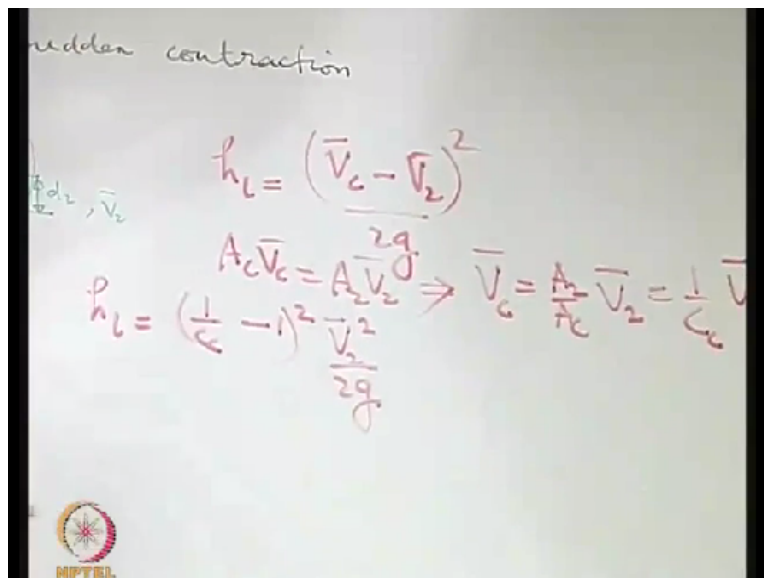 sudden contraction
h_L = (V̄_c - V̄_2)^2 / 2g
d_2, V̄_2
A_c V̄_c = A_2 V̄_2 ⇒ V̄_c = A_2/A_c V̄_2 = 1/C_c V̄
h_L = (1/C_c - 1)^2 V̄_2^2 / 2g
NPTEL